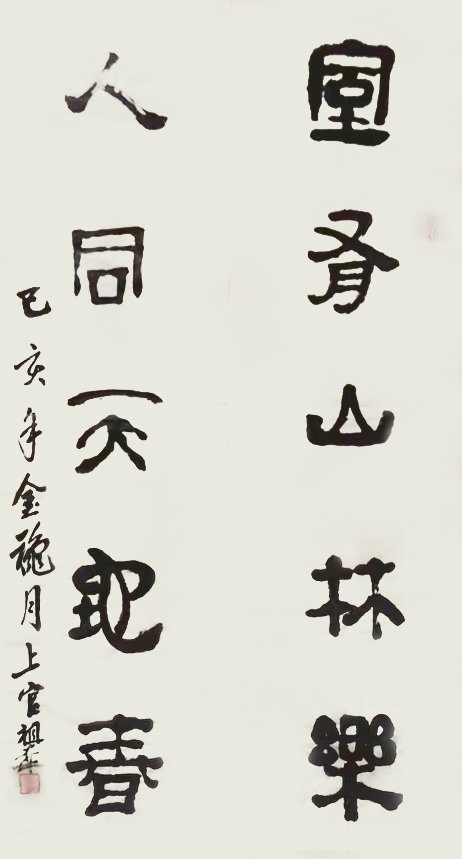 室有山林樂
人同天地春
己亥年金龝月上官祖